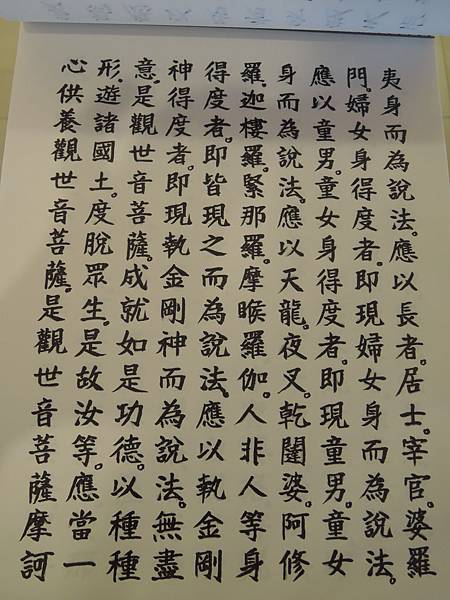 夷身而為說法。應以長者。居士。宰官。婆羅
門。婦女身得度者。即現婦女身而為說法。
應以童男。童女身得度者。即現童男。童女
身而為說法。應以天龍。夜叉。乾闥婆。阿修
羅。迦樓羅。緊那羅。摩睺羅伽。人非人等身
得度者。即皆現之而為說法。應以執金剛
神得度者。即現執金剛神而為說法。無盡
意。是觀世音菩薩。成就如是功德。以種種
形。遊諸國土。度脫眾生。是故汝等。應當一
心供養觀世音菩薩。是觀世音菩薩摩訶